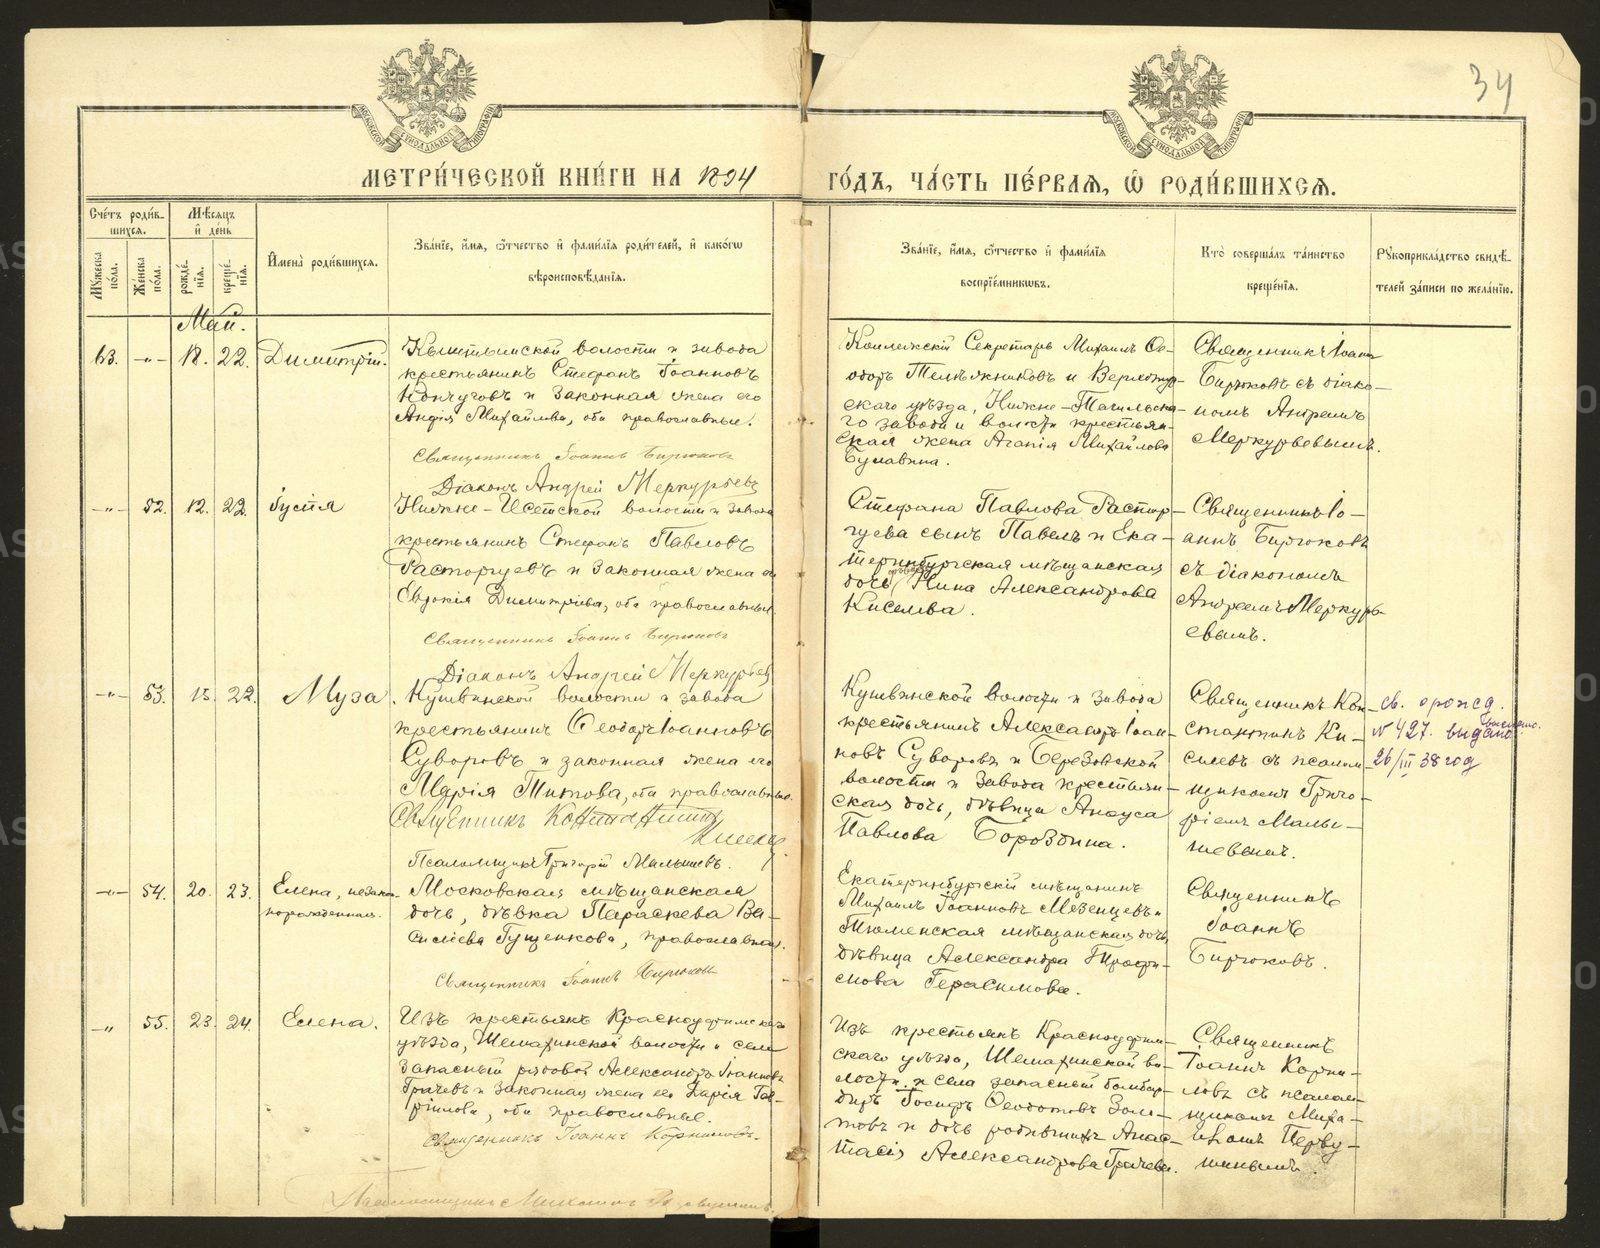 34
МЕТРИ́ЧЕСКОЙ КНИ́ГИ НА 1894 ГО́ДЪ, ЧА́СТЬ ПЕ́РВАЯ, Ѡ РОДИ́ВШИХСЯ.
Сче́тъ роди́в-
шихся.
Мꙋ́жеска по́ла.
Же́нска по́ла.
Мѣ́сяцъ и҆ день
рожде́-
нїя.
креще́-
нїя.
И҆мена̀ роди́вшихся.
Зва́нїе, и҆́мя, ѻ҆́тчество и҆ фами́лїя роди́телей, и҆ како́гѡ
вѣроисповѣ́данїя.
Зва́нїе, и҆́мя, ѻ҆́тчество и҆ фами́лїя
воспрїе́мникѡвъ.
Кто̀ соверша́лъ та́инство
креще́нїя.
Рꙋкоприкла́дство свидѣ́-
телей за́писи по жела́нїю.
Май.
63. -„- 18. 22. Димитрій.
Кыштымской волости и завода
крестьянинъ Стефанъ Іоанновъ
и законная жена его
Михайлова, оба православные.
Священникъ Іоаннъ Бирюковъ
Діаконъ Андрей Меркурьевъ
Коллежскій Секретарь Михаилъ Ѳе-
одоръ и Верхотур-
скаго уѣзда, Нижне-Тагильска-
го завода и волости крестьян-
ская жена Агапія Михайлова
Булавина.
Священникъ Іоаннъ
Бирюковъ съ діако-
номъ Андреемъ
Меркурьевымъ.
-„- 52. 12. 22. Іустія
Нижне-Исетской волости и завода
крестьянинъ Стефанъ Павловъ
Расторгуевъ и законная жена его
Евдокія Димитріева, оба православные
Священникъ Іоаннъ Бирюковъ
Діаконъ Андрей Меркурьевъ
Стефана Павлова Растор-
гуева сынъ Павелъ и Ека-
теринбургская мѣщанская
дочь Нина Александрова
Киселева.
Священникъ Іо-
аннъ Бирюковъ
съ діакономъ
Андреемъ Меркурь-
евымъ.
-„- 53. 15. 22. Муза.
Кушвинской волости и завода
крестьянинъ Ѳеодоръ Іоанновъ
Суворовъ и законная жена его
Марія Титова, оба православные.
Священникъ Константинъ
Киселевъ.
Псаломщикъ Григорій Малышевъ.
Кушвинской волости и завода
крестьянинъ Александръ Іоан-
новъ Суворовъ и Березовской
волости и завода крестьян-
ская дочь, дѣвица Анфуса
Павлова Бороздина.
Священникъ Кон-
стантинъ Ки-
селевъ съ псалом-
щикомъ Григо-
ріемъ Малы-
шевымъ.
св. о рожд.
№ 427. выдано
26/III 38 год
-„- 54. 20. 23. Елена, незакон-
норожденная.
Московская мѣщанская
дочь, дѣвка Параскева Ва-
силіева Гущенкова, православная.
Священникъ Іоаннъ Бирюковъ
Екатеринбургскій мѣщанинъ
Михаилъ Іоанновъ Мезенцевъ и
Тюменская мѣщанская дочь,
дѣвица Александра Трофи-
мова Герасимова.
Священникъ
Іоаннъ
Бирюковъ.
-„- 55. 23. 24. Елена.
Изъ крестьянъ Красноуфимскаго
уѣзда, Шемахинской волости и села
запасный рядовой Александръ Іоанновъ
Грачевъ и законная жена его Дарія Гав-
ріилова, оба православные.
Священникъ Іоаннъ Корниловъ.
Псаломщикъ Михаилъ Первушинъ.
Изъ крестьянъ Красноуфим-
скаго уѣзда, Шемахинской во-
лости и села запасный бомбар-
диръ Іосифъ Ѳеодотовъ Золо-
товъ и дочь родившихъ Анас-
тасія Александрова Грачева.
Священникъ
Іоаннъ Корни-
ловъ съ псалом-
щикомъ Миха-
иломъ Перву-
шинымъ.